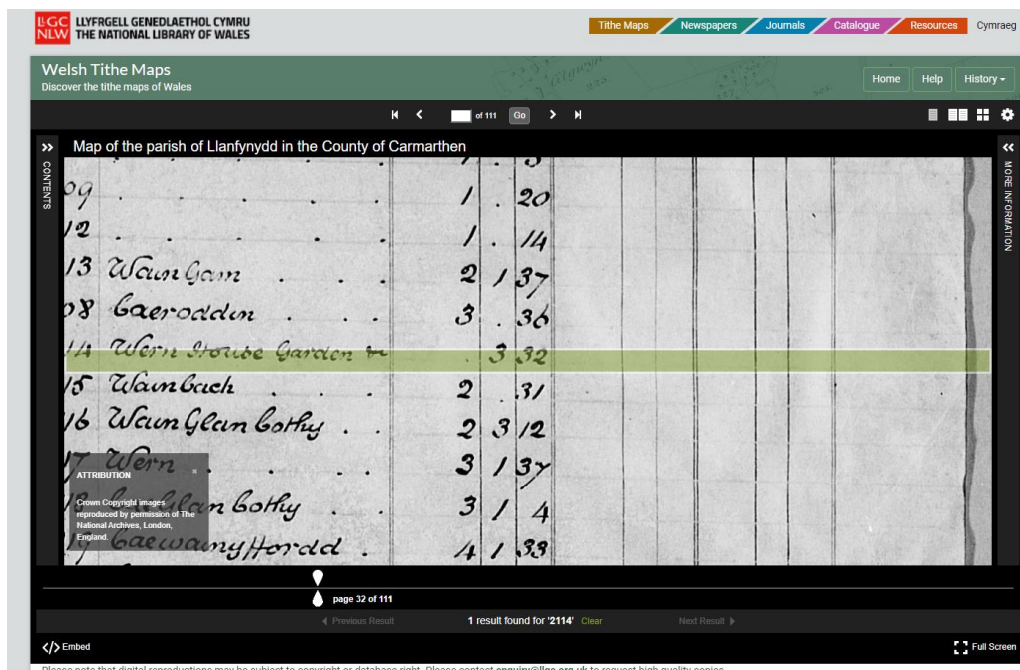 LLGC LLYFRGELL GENEDLAETHOL CYMRU
NLW THE NATIONAL LIBRARY OF WALES
Tithe Maps Newspapers Journals Catalogue Resources Cymraeg
Welsh Tithe Maps
Discover the tithe maps of Wales
Home Help History
of 111 Go
CONTENTS
Map of the parish of Llanfynydd in the County of Carmarthen
MORE INFORMATION
09 . . . . . 1 . 20
12 . . . . . 1 . 14
13 Waun Gam . . . 2 1 37
08 Caeroddin . . . 3 . 36
14 Wern House Garden &c . 3 32
15 Waunbach . . . 2 . 31
16 Waun Glan Cothy . . 2 3 12
17 Wern . . . . 3 1 37
18 Glan Cothy . . 3 1 4
19 Caewaunyffordd . 4 1 33
ATTRIBUTION ×
Crown Copyright images
reproduced by permission of The
National Archives, London,
England.
page 32 of 111
Previous Result 1 result found for '2114' Clear Next Result
</> Embed Full Screen
Please note that digital reproductions may be subject to copyright or database right. Please contact enquiry@llgc.org.uk to request high quality copies.